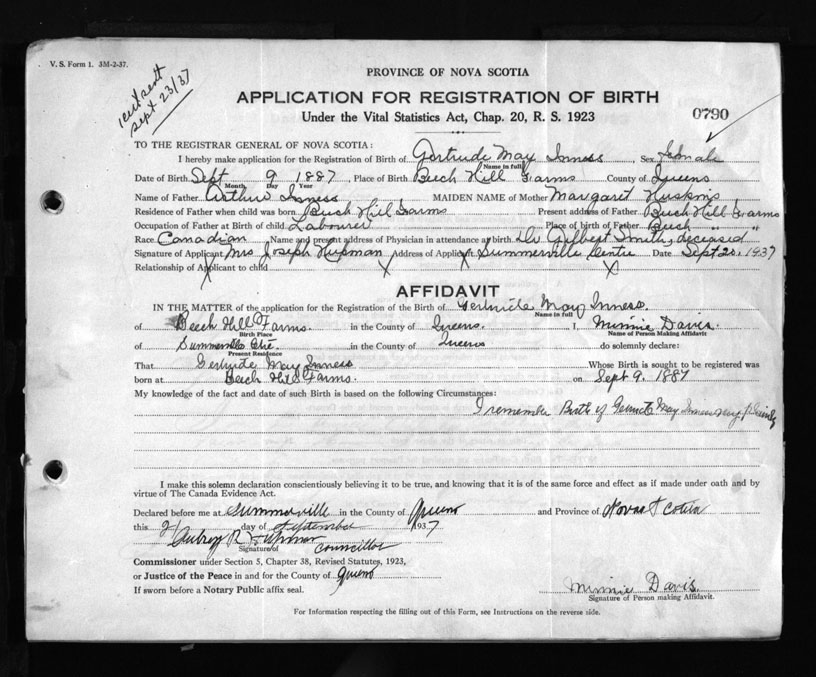 V. S. Form 1. 3M-2-37.
1 cert sent
Sept 23/37
PROVINCE OF NOVA SCOTIA
APPLICATION FOR REGISTRATION OF BIRTH
0790
Under the Vital Statistics Act, Chap. 20, R. S. 1923
TO THE REGISTRAR GENERAL OF NOVA SCOTIA:
I hereby make application for the Registration of Birth of Gertrude May Inness, Sex Female
Name in full
Date of Birth Sept 9 1887, Place of Birth Beech Hill Farms County of Queens
Month Day Year
Name of Father Arthur Inness MAIDEN NAME of Mother Margaret Huskins
Residence of Father when child was born Beech Hill Farms Present address of Father Beech Hill Farms
Occupation of Father at Birth of child Labourer Place of birth of Father Beech " "
Race Canadian Name and present address of Physician in attendance at birth Dr Gilbert Smith, deceased
Signature of Applicant Mrs Joseph Hupman Address of Applicant Summerville Centre Date Sept 20, 1937
Relationship of Applicant to child
AFFIDAVIT
IN THE MATTER of the application for the Registration of the Birth of Gertrude May Inness.
Name in full
of Beech Hill Farms. in the County of Queens. I, Minnie Davis.
Birth Place Name of Person Making Affidavit
of Summerville Ctre. in the County of Queens do solemnly declare:
Present Residence
That Gertrude May Inness Whose Birth is sought to be registered was
born at Beech Hill Farms. on Sept 9. 1887
My knowledge of the fact and date of such Birth is based on the following Circumstances:
I remember Birth of Gertrude May Inness very
I make this solemn declaration conscientiously believing it to be true, and knowing that it is of the same force and effect as if made under oath and by
virtue of The Canada Evidence Act.
Declared before me at Summerville in the County of Queens and Province of Nova Scotia
this 21 day of September 1937
Aubrey R Hupman
Signature of Councillor
Commissioner under Section 5, Chapter 38, Revised Statutes, 1923,
or Justice of the Peace in and for the County of Queens
If sworn before a Notary Public affix seal.
Minnie Davis.
Signature of Person making Affidavit.
For Information respecting the filling out of this Form, see Instructions on the reverse side.